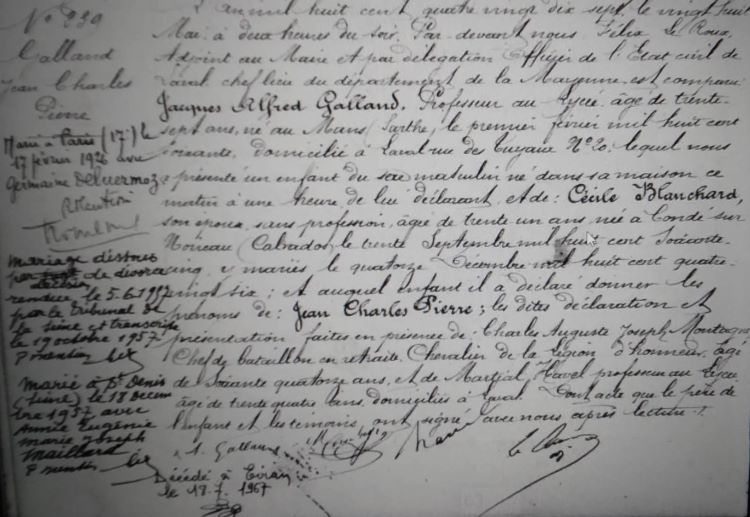 N° 230
Galland
Jean Charles
Pierre
Marié à Paris (17e) le
17 février 1926 avec
Germaine
P. Mention
mariage dissous
par de divorce
rendue le 5.6.1957
par le tribunal de
la Seine et transcrite
le 19 octobre 1957
P mention
marié à St Denis
(Seine) le 18 Décem
bre 1957 avec
Année Eugénie
marie Joseph
Maillard
P mention
L'an mil huit cent quatre vingt dix sept, le vingt huit
Mai à deux heures du soir. Par-devant nous Félix Le Roux,
Adjoint au Maire et par délégation Officier de l'Etat civil de
Laval chef lieu du département de la Mayenne est comparu
Jacques Alfred Galland, Professeur au Lycée, âgé de trente-
sept ans, né au Mans (Sarthe), le premier février mil huit cent
soixante, domicilié à Laval rue des Tuyaux N° 20; lequel nous
a présenté un enfant du sexe masculin né dans sa maison ce
matin à une heure de lui déclarant, et de: Cécile Blanchard,
son épouse, sans profession, âgée de trente un ans, née à Condé sur
Noireau (Calvados), le trente Septembre mil huit cent soixante-
cinq, y mariés le quatorze Décembre mil huit cent quatre-
vingt six; et auquel enfant il a déclaré donner les
prénoms de: Jean Charles Pierre; les dites déclaration et
présentation faites en présence de: Charles Auguste Joseph Montagne
Chef de bataillon en retraite, Chevalier de la légion d'honneur, âgé
de soixante quatorze ans, et de Martial Havel professeur au Lycée,
âgé de trente quatre ans, domiciliés à Laval. Dont acte que le père de
l'enfant et les témoins ont signé avec nous après lecture.
A. Galland
Havel
Décédé à
le 18.7.1967